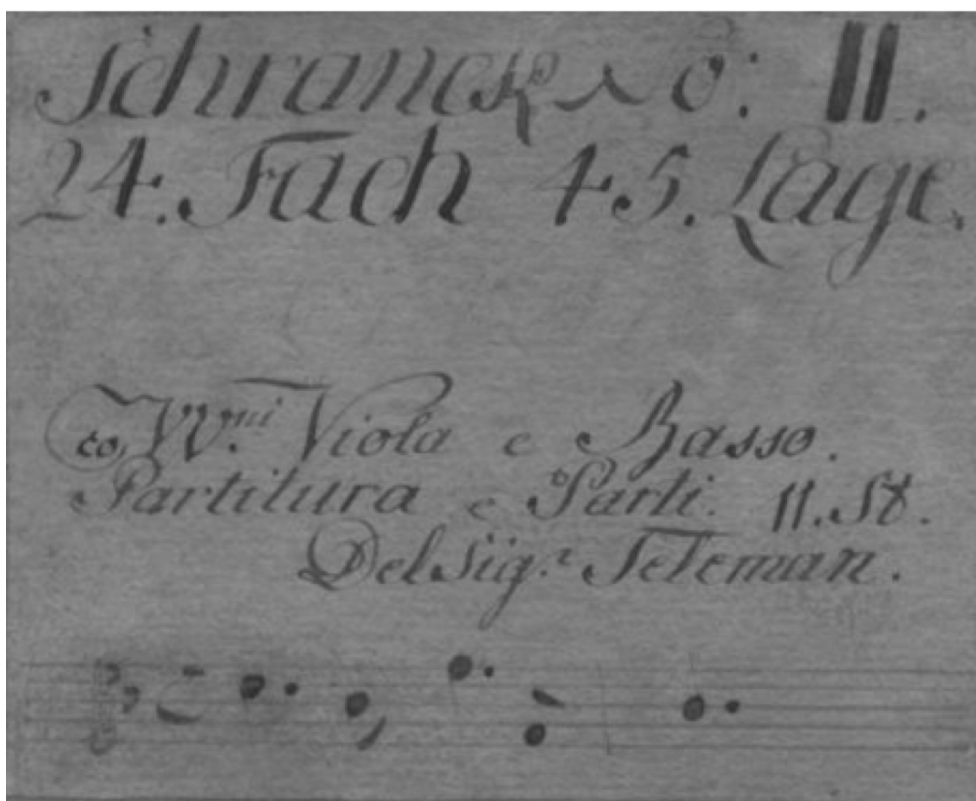 Schranck No: II.
24. Fach 45. Lage.
co VV.ni Viola e Basso.
Partitura e Parti. 11. St.
Del Sig.r Teleman.